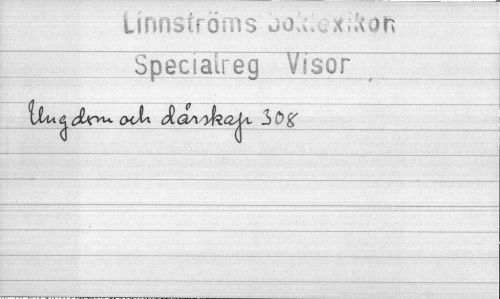 Linnströms boklexikon
Specialreg Visor
Ungdom och dårskap 308